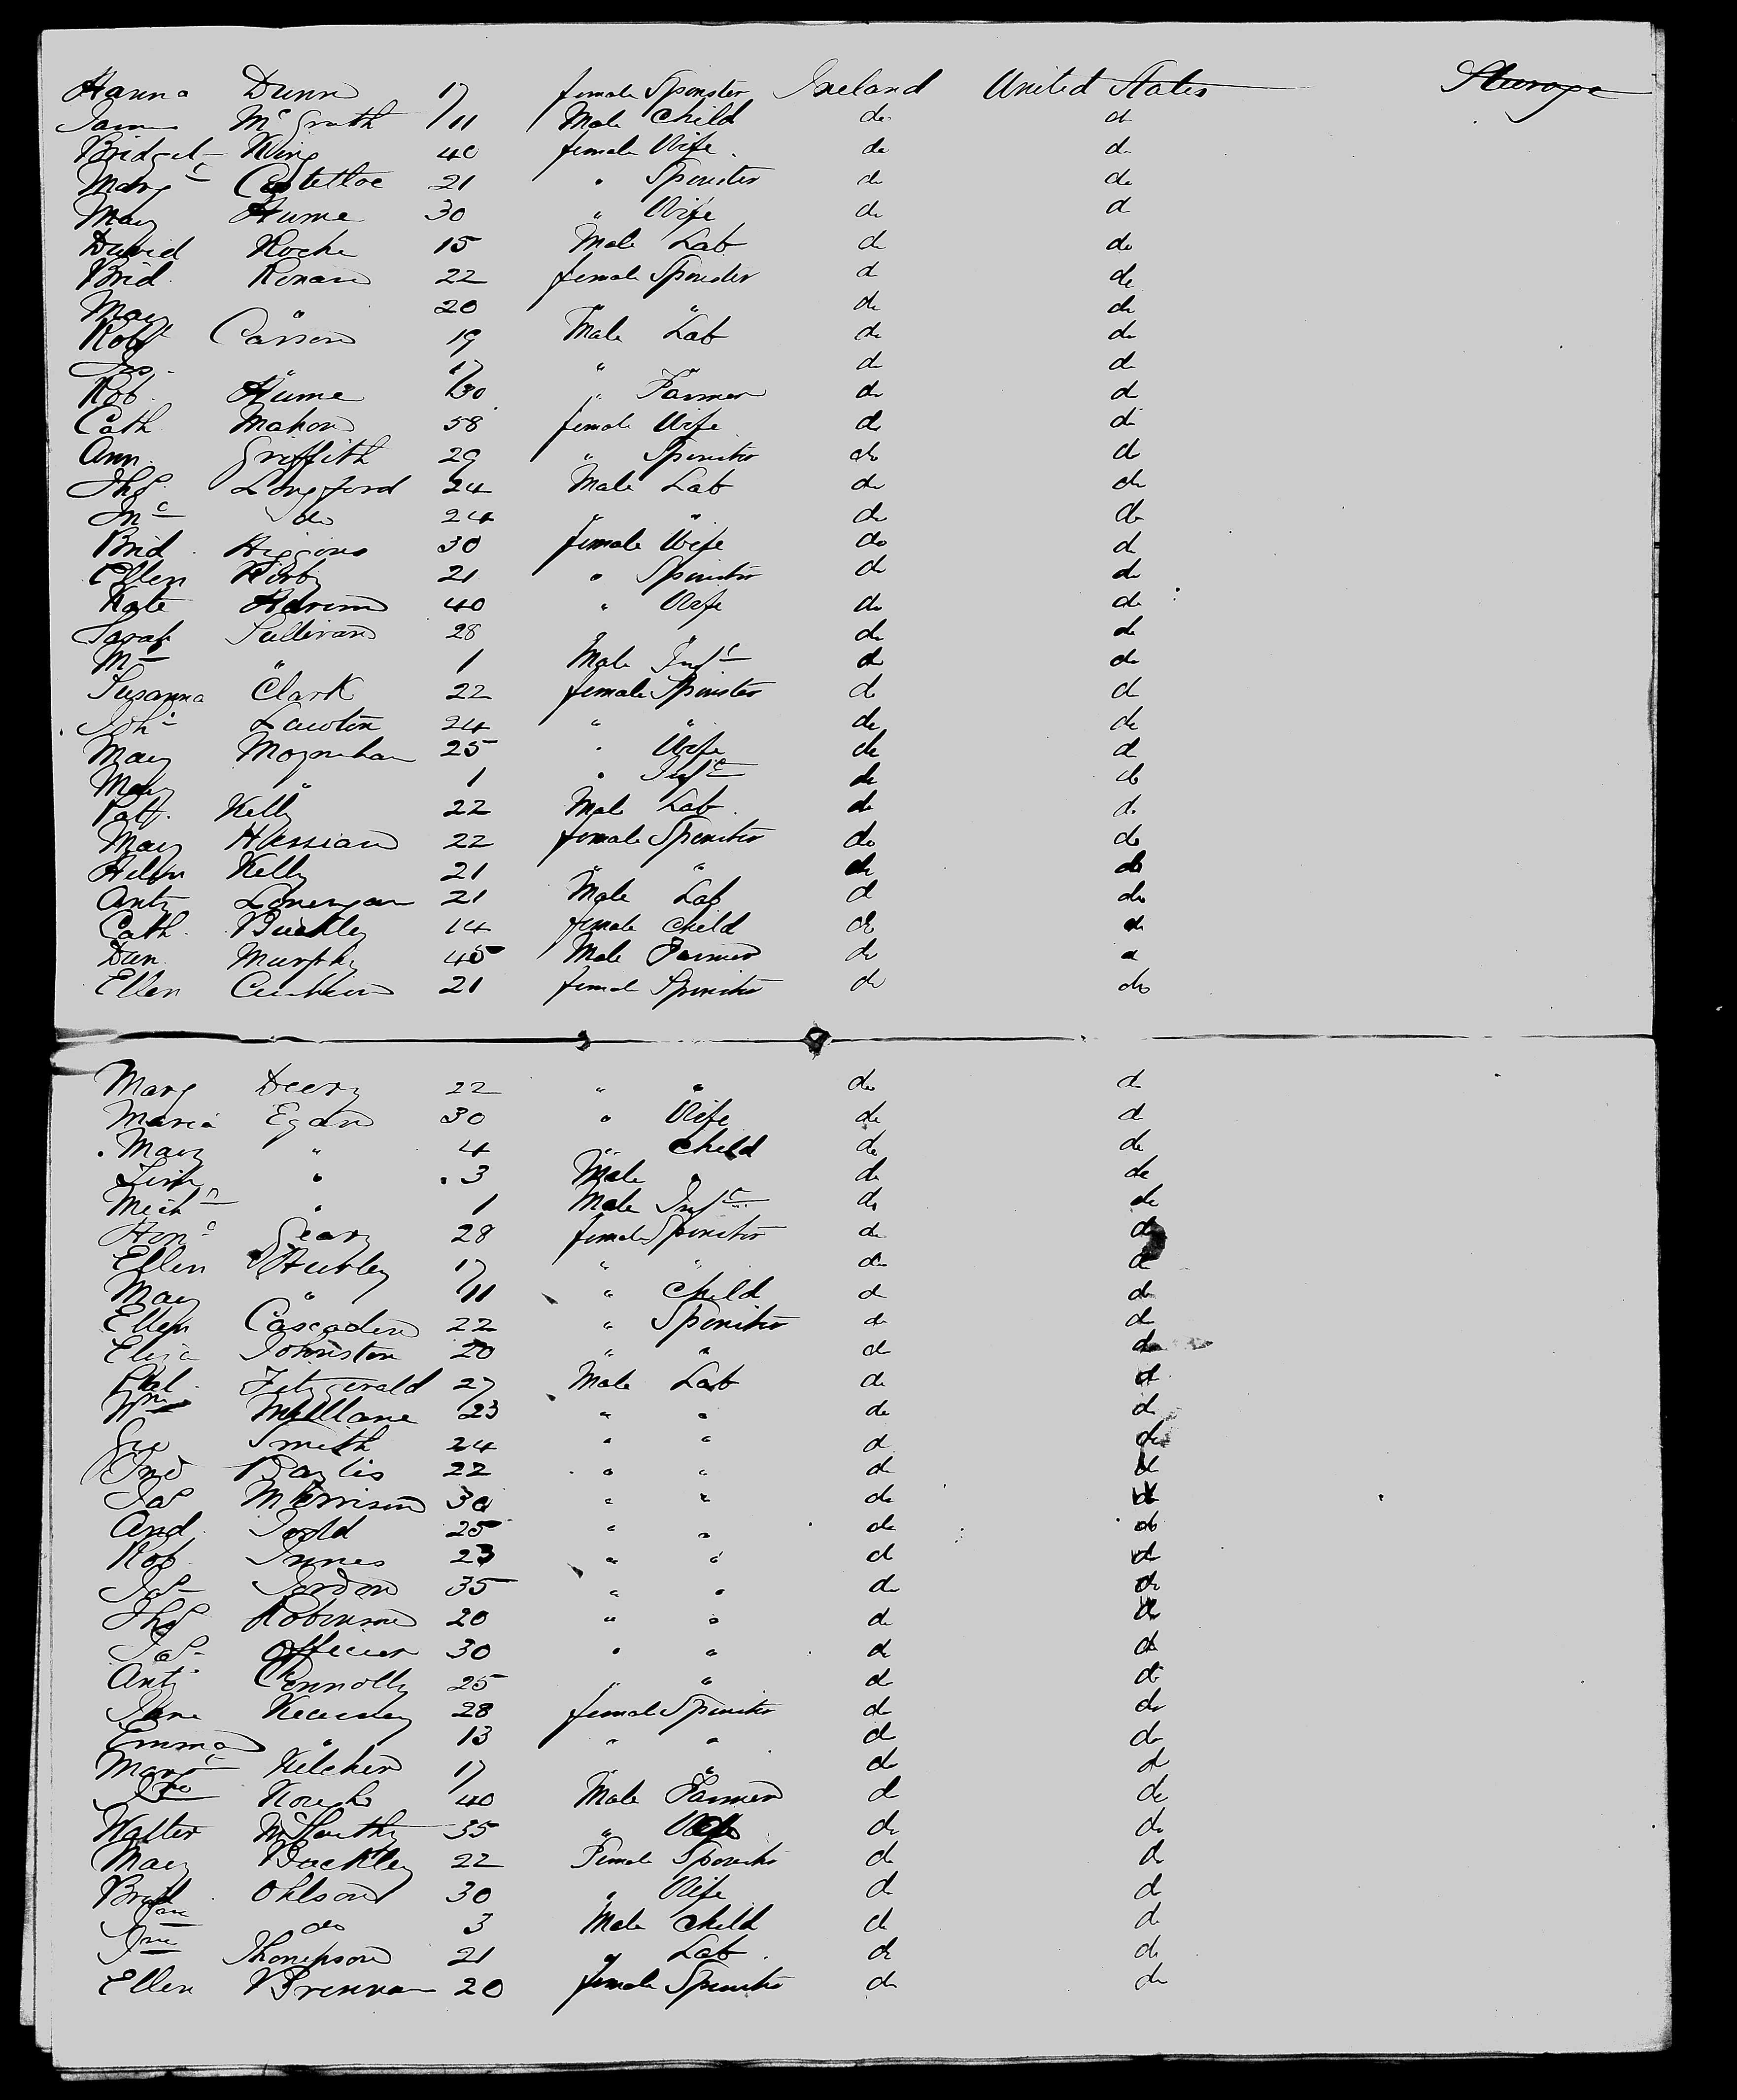 Hanna Dunn 17 female Spinster Ireland United States Steerage
James McGrath 11 Male Child do do
Bridget King 40 female Wife do do
Margt Costelloe 21 " Spinster do do
Mary Hume 30 " Wife do do
David Roche 15 Male Lab do do
Brid Ronan 22 female Spinster do do
Mary " 20 " " do do
Robt Carson 19 Male Lab do do
Jas " 17 " " do do
Rob Hume 30 " Farmer do do
Cath Mahon 58 female Wife do do
Ann Griffith 29 " Spinster do do
Thos Longford 24 Male Lab do do
do 24 " " do do
Brid Higgins 30 female Wife do do
Ellen Kirby 21 " Spinster do do
Kate 40 " Wife do do
Sarah Sullivan 28 do do
" 1 Male Inft do do
Susanna Clark 22 female Spinster do do
Joha Lawton 24 " " do do
Mary Moynihan 25 " Wife do do
Mary " 1 " Inft do do
Patk Kelly 22 Male Lab do do
Mary Hassian 22 female Spinster do do
Helen Kelly 21 " " do do
Anty Lonergan 21 Male Lab do do
Cath Buckley 14 female Child do do
Dan Murphy 45 Male Farmer do do
Ellen 21 female Spinster do do
Marg Deery 22 " " do do
Maria Egan 30 " Wife do do
Mary " 4 " Child do do
" 3 Male " do do
Michl " 1 Male Inft do do
Hona Geary 28 female Spinster do do
Ellen 17 " " do do
Mary " 11 " Child do do
Ellen Cascaden 22 " Spinster do do
Eliza Johnston 20 " " do do
Pat Fitzgerald 27 Male Lab do do
Wm Mullane 23 " " do do
Geo Smith 24 " " do do
Jno Baylis 22 " " do do
Jas Morrison 30 " " do do
And Todd 25 " " do do
Rob Innes 23 " " do do
Jas Gordon 35 " " do do
Thos Robinson 20 " " do do
Jas Officer 30 " " do do
Anty Connolly 25 " " do do
Jane Kearney 28 female Spinster do do
Emma " 13 " " do do
Margt Kelcher 17 " " do do
Jno 40 Male Farmer do do
Walter McCarthy 35 " do do
Mary Buckley 22 Female Spinster do do
Brid Ohlson 30 " Wife do do
do 3 Male Child do do
Jno Thompson 21 " Lab do do
Ellen Brennan 20 female Spinster do do